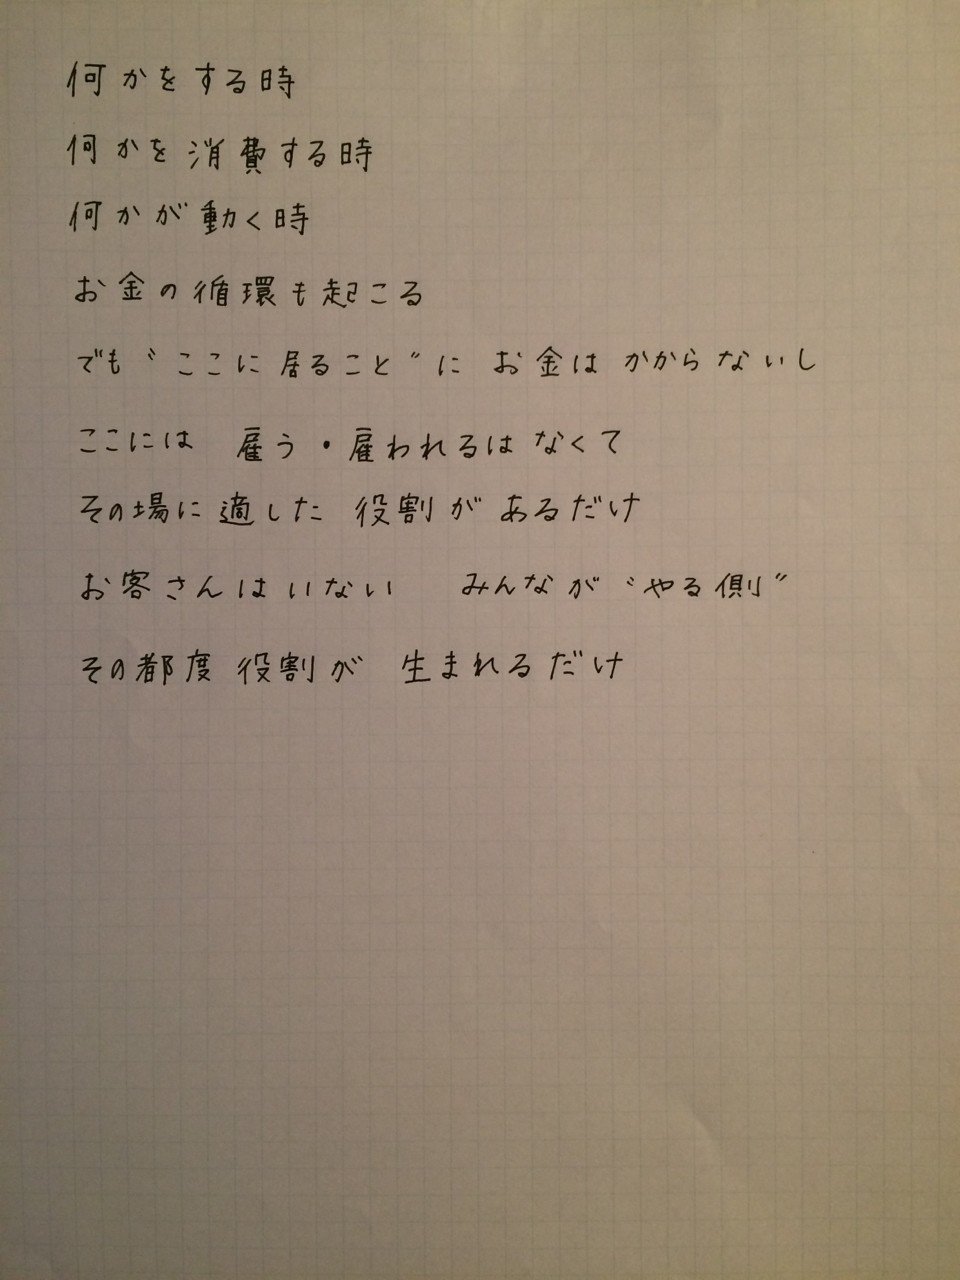 何かをする時
何かを消費する時
何かが動く時
お金の循環も起こる
でも〝ここに居ること〟に お金はかからないし
ここには 雇う・雇われるはなくて
その場に適した 役割が あるだけ
お客さんはいない みんなが〝やる側〟
その都度 役割が 生まれるだけ